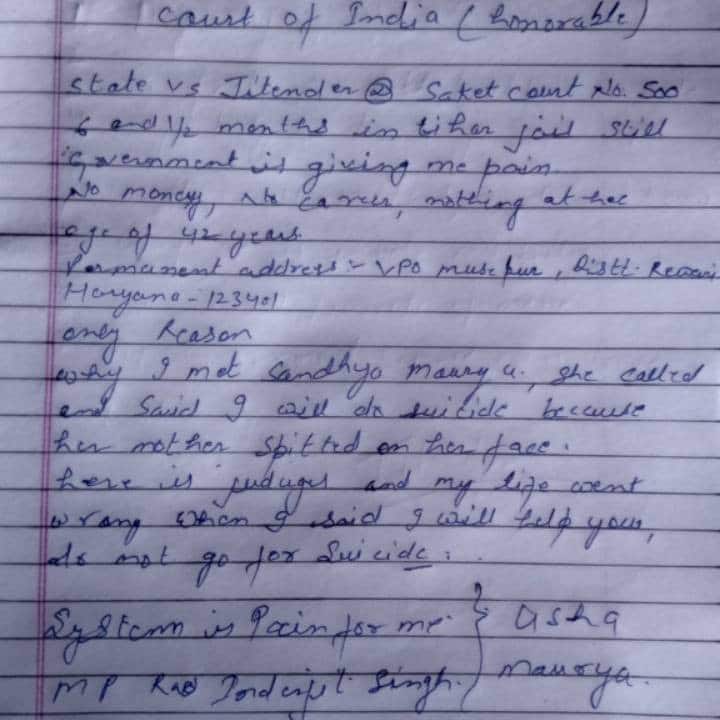 Court of India (honorable)
State vs Jitender @ Saket court No. 500
6 and 1/2 months in tihar jail still
Government is giving me pain.
No money, No career, nothing at the
age of 42 years.
Permanent address:- VPO musepur, Distt. Rewari
Haryana - 123401
only Reason
why I met Sandhya maurya, she called
and said I will do suicide because
her mother spitted on her face.
here is and my life went
wrong when I said I will help you,
do not go for Suicide.
System is Pain for me. } asha
MP Rao Inderjit Singh. } maurya.